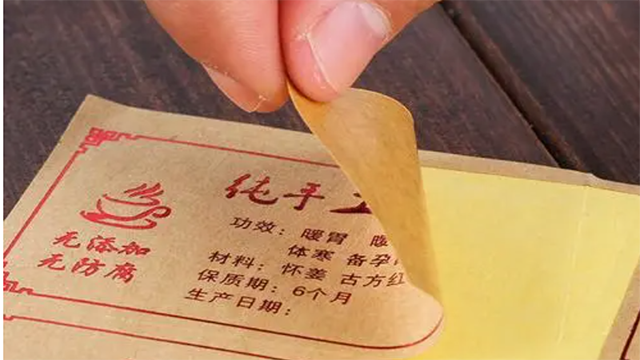 纯手
无添加
无防腐
功效：暖胃
体寒 备孕
材料：怀姜 古方红
保质期：6个月
生产日期：